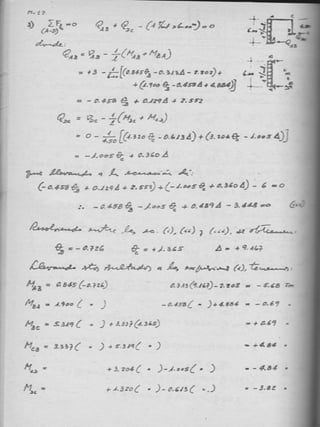 3) ΣF_x = 0 Q_AB + Q_DC - (1 T/m x 6.00 m) = 0
(A-D)
donde:
Q_AB = Q_BA - 1/L (M_AB + M_BA)
= +3 - 1/6 [(0.845θ_B - 0.313Δ - 2.202) +
+ (1.900θ_B - 0.458Δ + 4.884)]
= - 0.458θ_B + 0.129Δ + 2.552
= 0 - 1/4.50 [(1.320θ_C - 0.613Δ) + (3.204θ_C - 1.005Δ)]
= - 1.005θ_C + 0.360Δ
que llevando a la ecuación da:
(-0.458θ_B + 0.129Δ + 2.552) + (-1.005θ_C + 0.360Δ) - 6 = 0
∴ - 0.458θ_B - 1.005θ_C + 0.489Δ - 3.448 = 0
Resolviendo entre las ec. (i), (ii) y (iii), se obtienen:
θ_B = - 0.726 θ_C = + 1.365 Δ = + 9.167
Llevando estos resultados a las expresiones (2), tenemos:
M_AB = 0.845 (-0.726) 0.313 (9.167) - 2.202 = - 5.68 Tm
M_BA = 1.900 ( " ) - 0.458 ( " ) + 4.884 = - 0.69 "
M_BC = 5.319 ( " ) + 3.337 (1.365) = + 0.69 "
M_CB = 3.337 ( " ) + 5.319 ( " ) = + 4.84 "
M_CD = + 3.204 ( " ) - 1.005 ( " ) = - 4.84 "
M_DC = + 1.320 ( " ) - 0.613 ( " ) = - 3.82 "